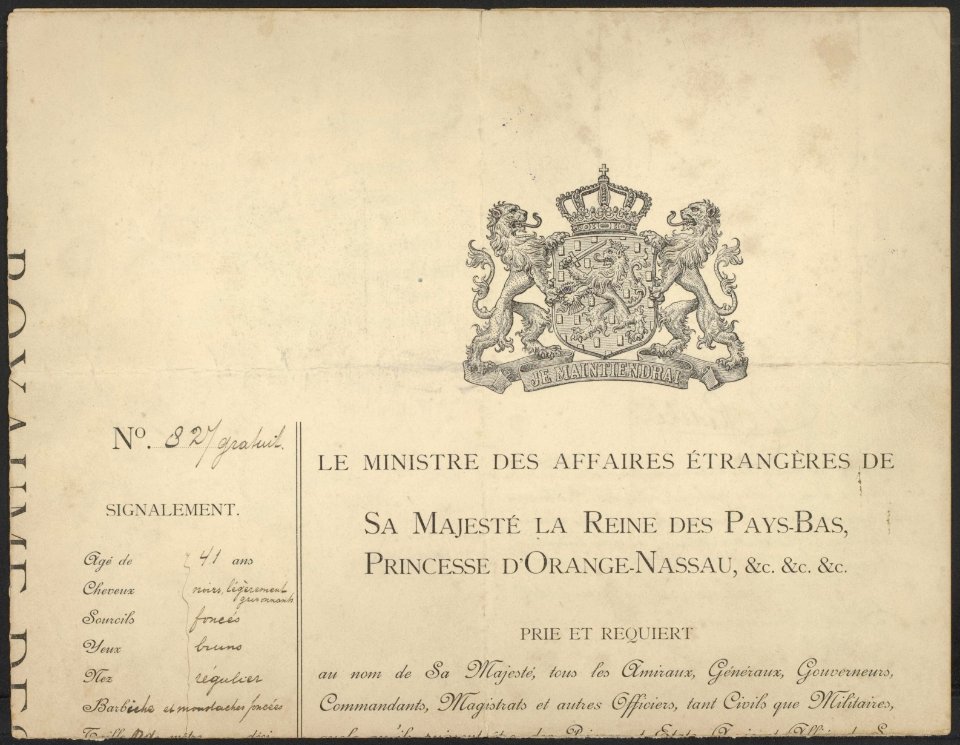 ROYAUME DES
JE MAINTIENDRAI
No. 827 gratuit.
SIGNALEMENT.
Agé de 41 ans
Cheveux noirs, légèrement grisonnants
Sourcils foncés
Yeux bruns
Nez régulier
Barbiche et moustaches foncées
LE MINISTRE DES AFFAIRES ÉTRANGÈRES DE
SA MAJESTÉ LA REINE DES PAYS-BAS,
PRINCESSE D'ORANGE-NASSAU, &c. &c. &c.
PRIE ET REQUIERT
au nom de Sa Majesté, tous les Amiraux, Généraux, Gouverneurs,
Commandants, Magistrats et autres Officiers, tant Civils que Militaires,